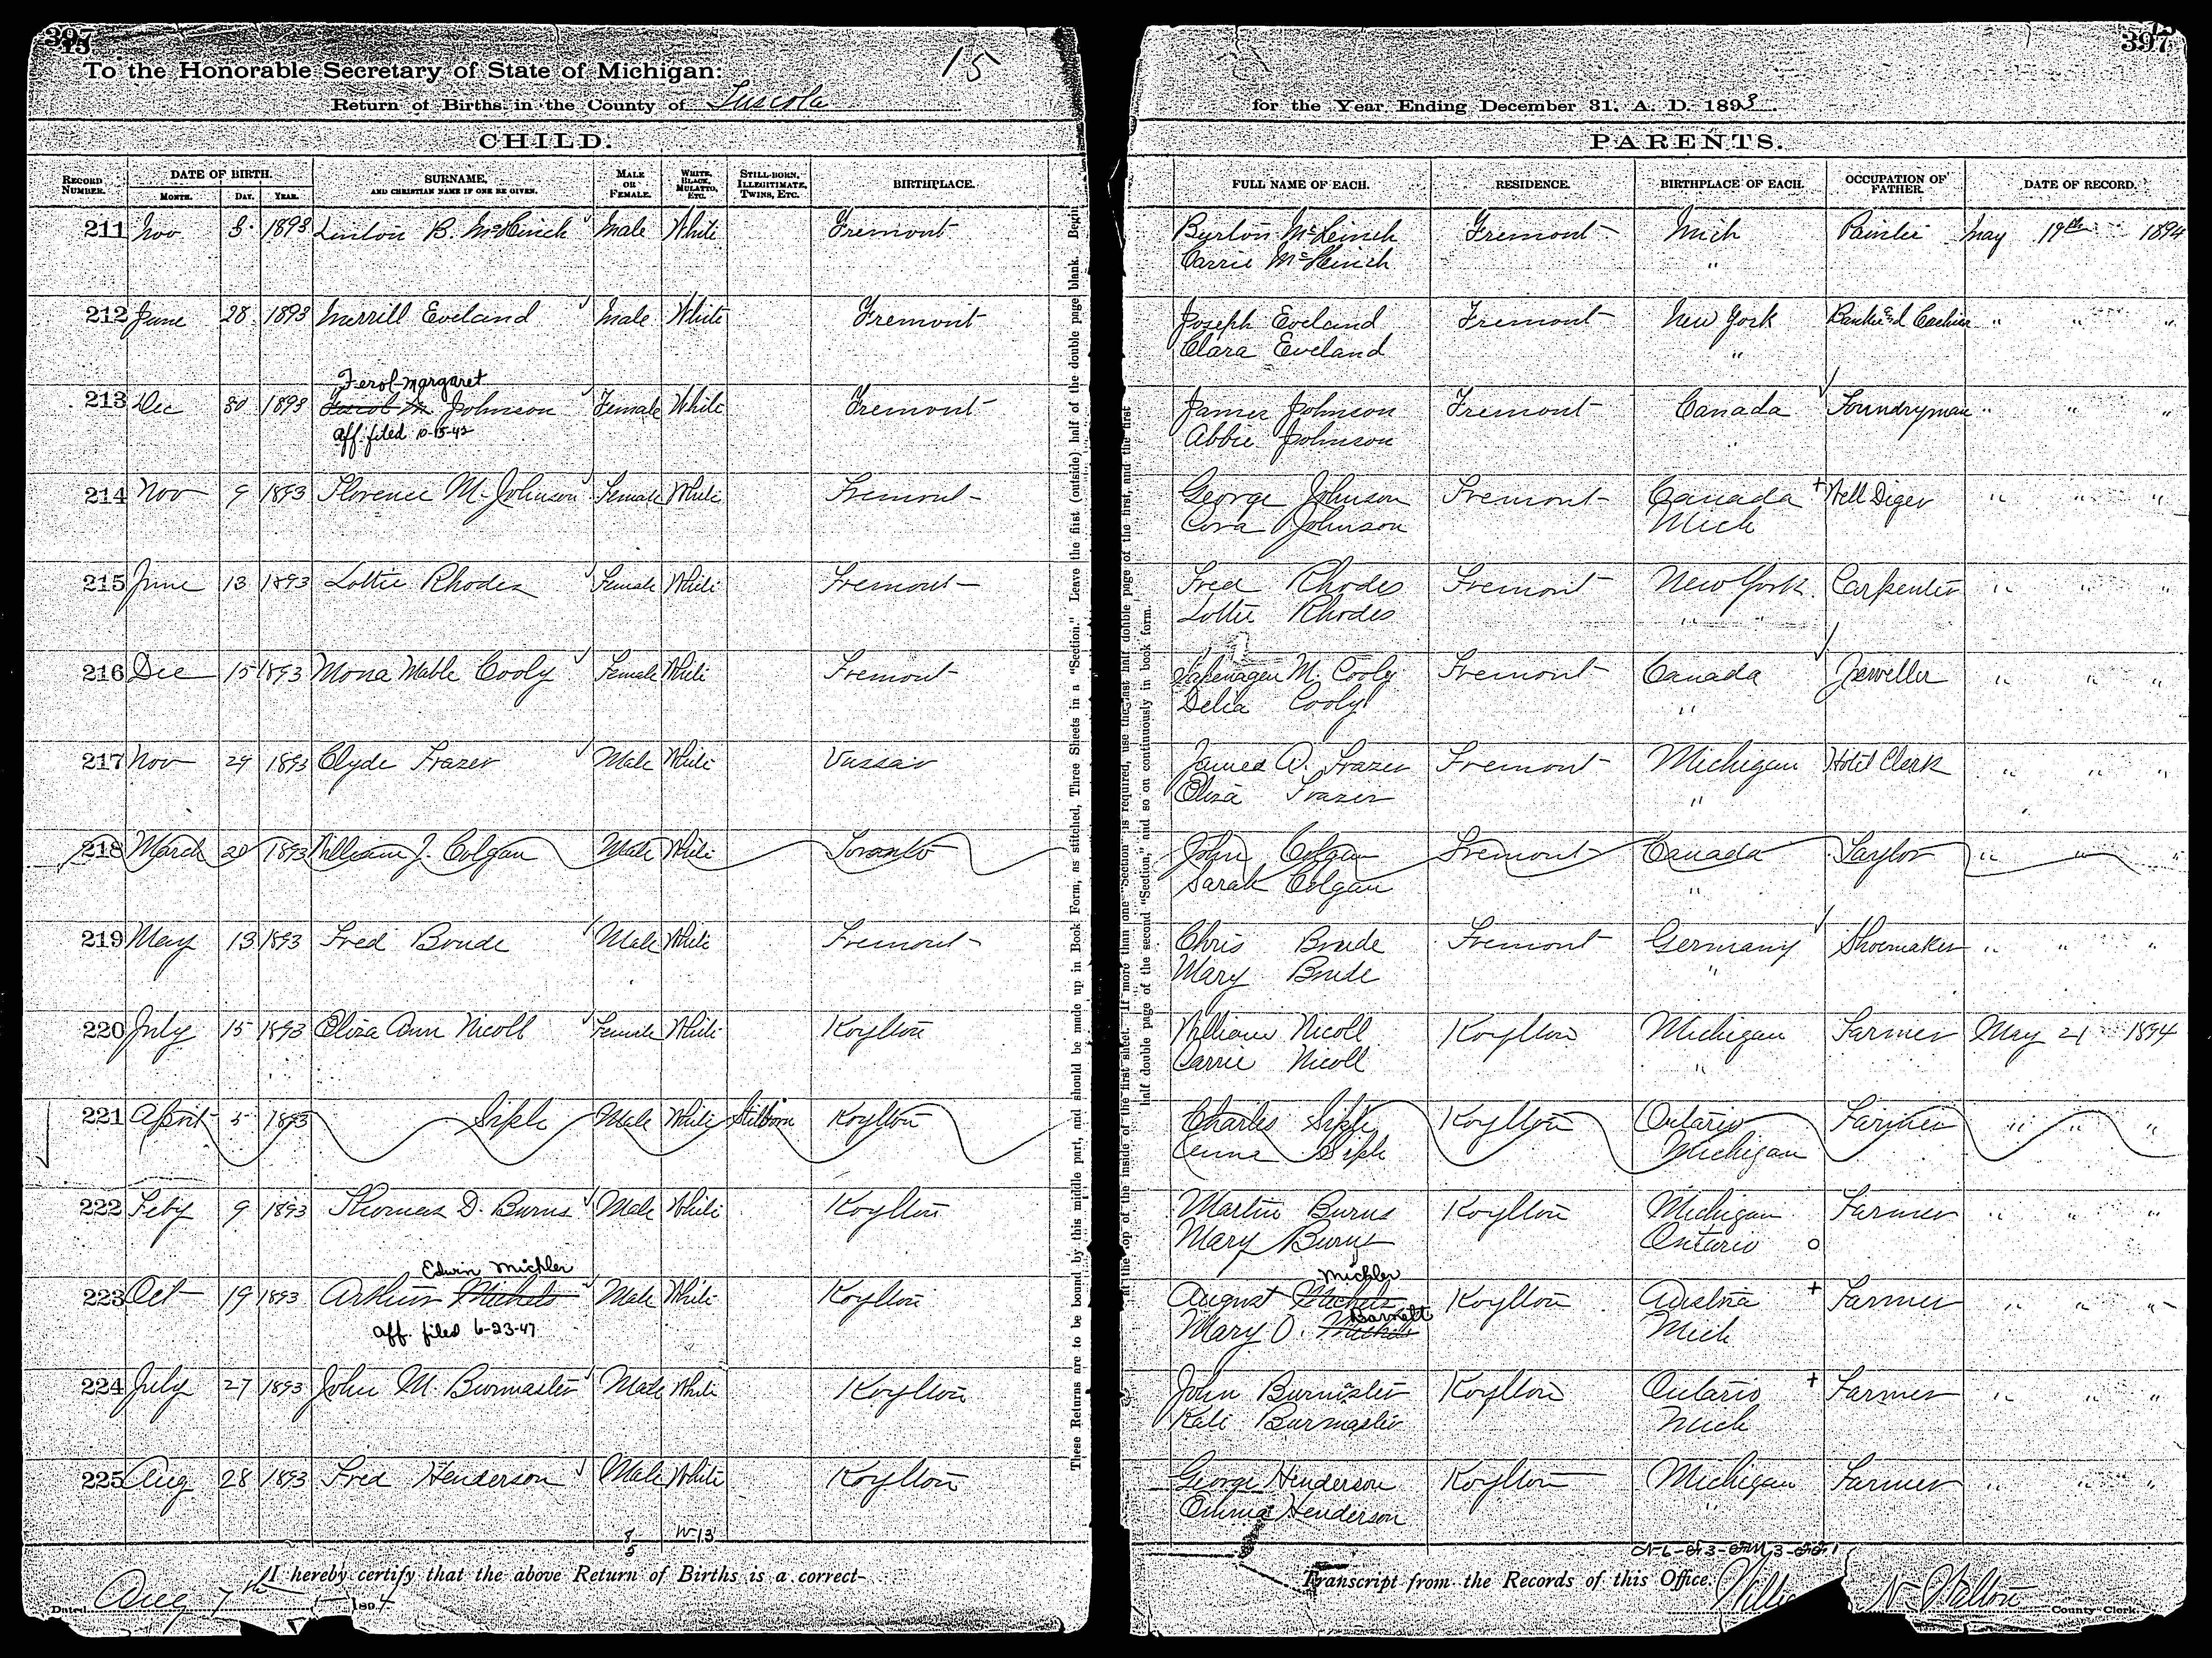 397
To the Honorable Secretary of State of Michigan:
15
Return of Births in the County of Tuscola
CHILD.
RECORD NUMBER.
DATE OF BIRTH.
MONTH. DAY. YEAR.
SURNAME,
AND CHRISTIAN NAME IF ONE BE GIVEN.
MALE OR FEMALE.
WHITE, BLACK, MULATTO, ETC.
STILL-BORN, ILLEGITIMATE, TWINS, ETC.
BIRTHPLACE.
211 Nov 3 1893 Linton B. McKinch Male White Fremont
212 June 28 1893 Merrill Eveland Male White Fremont
Ferol Margaret
213 Dec 30 1893 Johnson Female White Fremont
aff. filed 10-15-42
214 Nov 9 1893 Florence M. Johnson Female White Fremont
215 June 13 1893 Lottie Rhodes Female White Fremont
216 Dec 15 1893 Mona Mable Cooly Female White Fremont
217 Nov 29 1893 Clyde Frazer Male White Vassar
218 March 20 1893 William J. Colgan Male White Toronto
219 May 13 1893 Fred Boude Male White Fremont
220 July 15 1893 Eliza Ann Nicoll Female White Koylton
221 April 5 1893 Siple Male White Stilborn Koylton
222 Feby 9 1893 Thomas D. Burns Male White Koylton
Edwin Michler
223 Oct 19 1893 Arthur Michels Male White Koylton
aff. filed 6-23-47
224 July 27 1893 John M. Burmaster Male White Koylton
225 Aug 28 1893 Fred Henderson Male White Koylton
8
5
W-13
I hereby certify that the above Return of Births is a correct
Dated Aug 7th 1894
These Returns are to be bound by this middle part, and should be made up in Book Form, as stitched, Three Sheets in a "Section." Leave the first (outside) half of the double page blank. Begin
at the top of the inside of the first sheet. If more than one "Section" is required, use the last half double page of the first, and the first
half double page of the second "Section," and so on continuously in book form.
397
for the Year Ending December 31, A. D. 1893.
PARENTS.
FULL NAME OF EACH.
RESIDENCE.
BIRTHPLACE OF EACH.
OCCUPATION OF FATHER.
DATE OF RECORD.
Burton McKinch Fremont Mich Painter May 19th 1894
Carrie McKinch "
Joseph Eveland Fremont New York Cashier " " "
Clara Eveland "
James Johnson Fremont Canada Foundryman " " "
Abbie Johnson
George Johnson Fremont Canada + Well Diger " " "
Cora Johnson Mich
Fred Rhodes Fremont New York Carpenter " " "
Lottie Rhodes " "
M. Cooly Fremont Canada Jeweller " " "
Delia Cooly "
James A. Frazer Fremont Michigan Hotel Clerk " " "
Eliza Frazer "
John Colgan Fremont Canada Taylor " " "
Sarah Colgan "
Chris Boude Fremont Germany Shoemaker " " "
Mary Boude "
William Nicoll Koylton Michigan Farmer May 21 1894
Carrie Nicoll "
Charles Siple Koylton Ontario Farmer " " "
Anna Siple Michigan
Martin Burns Koylton Michigan Farmer " " "
Mary Burns Ontario o
Michler
August Michels Koylton Austria + Farmer " " "
Barnett
Mary O. Michels Mich
John Burmaster Koylton Ontario + Farmer " " "
Kate Burmaster Mich
George Henderson Koylton Michigan Farmer " " "
Emma Henderson "
Transcript from the Records of this Office.
N. Walton County Clerk.